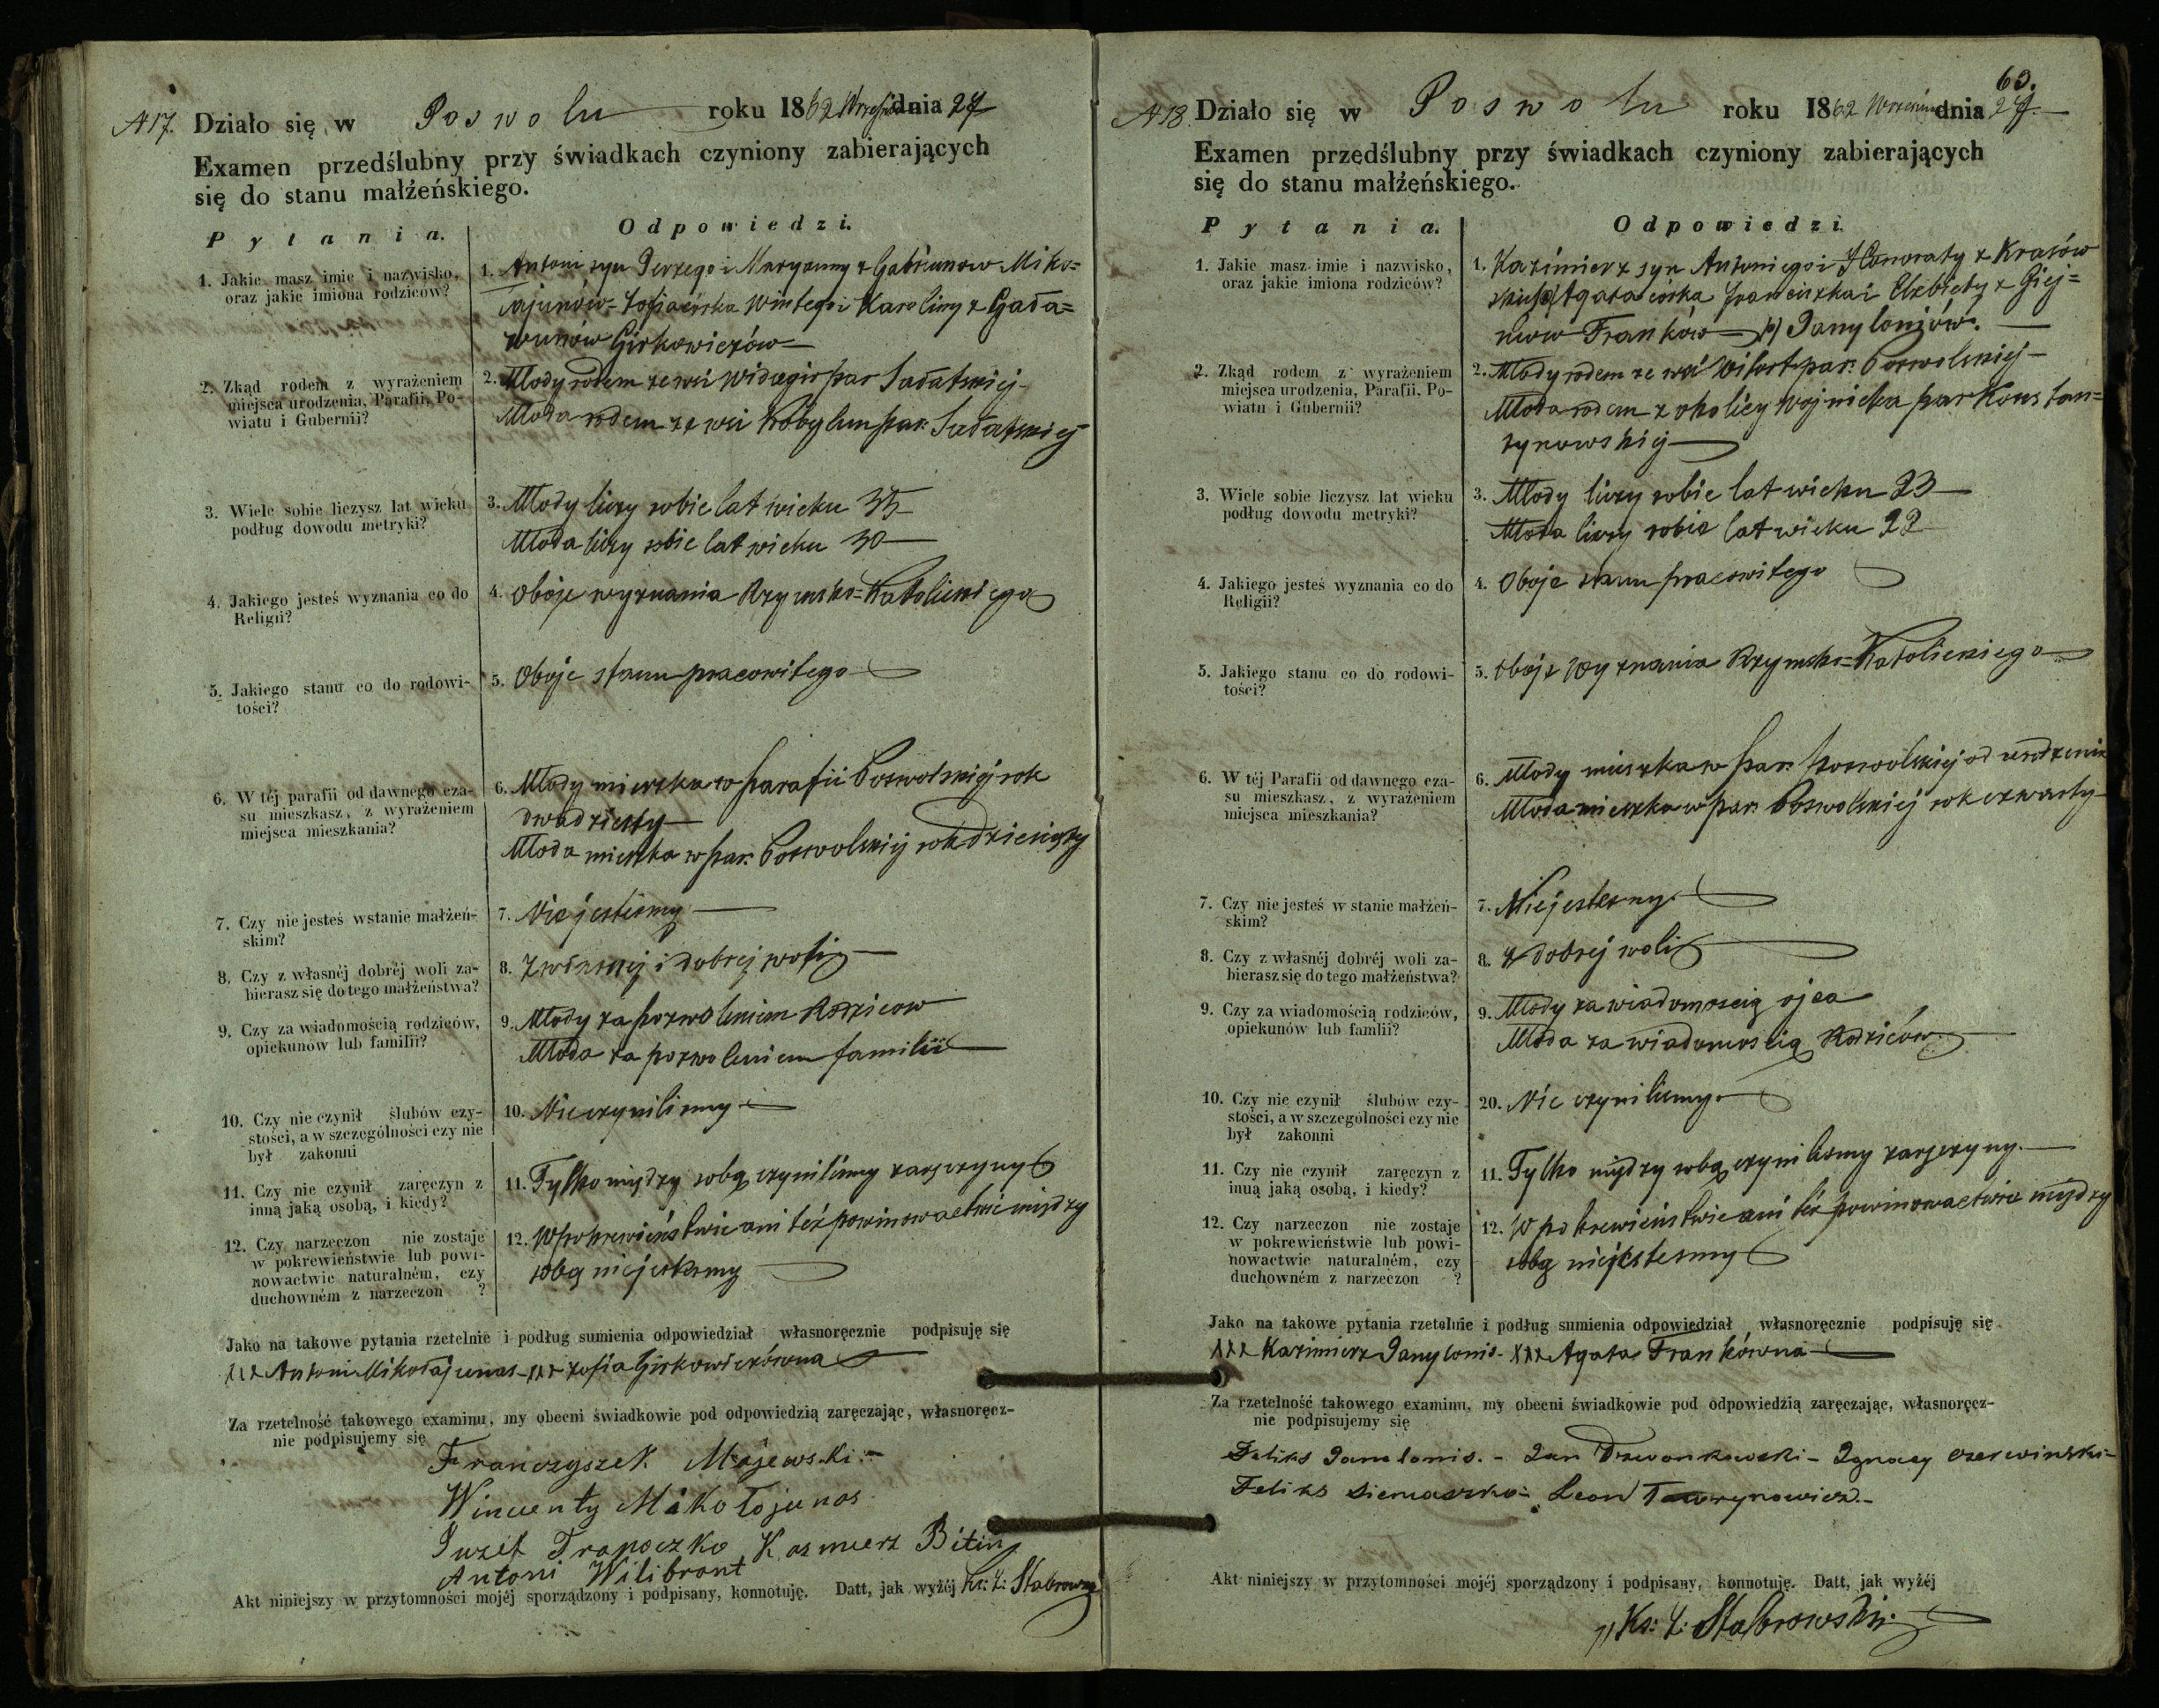 N 17. Działo się w Poswolu roku 1862 Września dnia 27
Examen przedślubny przy świadkach czyniony zabierających
się do stanu małżeńskiego.
Pytania. Odpowiedzi.
1. Jakie masz imie i nazwisko,
oraz jakie imiona rodziców?
1. Antoni syn Jerzego i Maryanny z Gabrunow Miko=
łajunów= Zofia córka Wintego i Karoliny z Gada=
Girkowiczów
2. Zkąd rodem z wyrażeniem
miejsca urodzenia, Parafii, Po-
wiatu i Gubernii?
2. Młody rodem ze wsi par Sałatskiej
Młoda rodem ze wsi par. Sałatskiej
3. Wiele sobie liczysz lat wieku
podług dowodu metryki?
3. Młody liczy sobie lat wieku 35
Młoda liczy sobie lat wieku 30
4. Jakiego jesteś wyznania co do
Religii?
4. Oboje wyznania Rzymsko=Katolickiego
5. Jakiego stanu co do rodowi-
tości?
5. Oboje stanu pracowitego
6. W téj parafii od dawnego cza-
su mieszkasz, z wyrażeniem
miejsca mieszkania?
6. Młody mieszka w parafii Poswolskiej rok
dwudziesty
Młoda mieszka w par. Poswolskiej rok dziewiąty
7. Czy nie jesteś w stanie małżeń-
skim?
7. Nie jestesmy
8. Czy z własnéj dobréj woli za-
bierasz się do tego małżeństwa?
8. Z własnej i dobrej woli
9. Czy za wiadomością rodziców,
opiekunów lub familii?
9. Młody za pozwoleniem Rodzicow
Młoda za pozwoleniem familii
10. Czy nie czynił ślubów czy-
stości, a w szczególności czy nie
był zakonni
10. Nie czynilismy
11. Czy nie czynił zaręczyn z
inną jaką osobą, i kiedy?
11. Tylko między sobą czynilismy zaręczyny
12. Czy narzeczon nie zostaje
w pokrewieństwie lub powi-
nowactwie naturalném, czy
duchowném z narzeczon ?
12. W pokrewieństwie ani też powinowactwie między
sobą nie jestesmy
Jako na takowe pytania rzetelnie i podług sumienia odpowiedział własnoręcznie podpisuję się
xxx Antoni Mikołajunas - xxx Zofia Girkowiczówna
Za rzetelność takowego examinu, my obecni świadkowie pod odpowiedzią zaręczając, własnoręcz-
nie podpisujemy się
Franczyszek Majewski.
Wincenty Mikołojunas
Juzef Kazmierz Bitin
Antoni Wilibrant
Akt niniejszy w przytomności mojéj sporządzony i podpisany, konnotuję. Datt, jak wyżéj Ks: Z: Stabrowski
63.
N 18. Działo się w Poswolu roku 1862 Września dnia 27.
Examen przedślubny przy świadkach czyniony zabierających
się do stanu małżeńskiego.
Pytania. Odpowiedzi.
1. Jakie masz imie i nazwisko,
oraz jakie imiona rodziców?
1. Kazimierz syn Antoniego i Honoraty z Krasów
Agata córka Franciszka i Elzbiety z Giej=
Franków Danyloniów.
2. Zkąd rodem z wyrażeniem
miejsca urodzenia, Parafii, Po-
wiatu i Gubernii?
2. Młody rodem ze wsi par. Poswolskiej
Młoda rodem z okolicy Wojnicka par Konstan=
tynowskiej
3. Wiele sobie liczysz lat wieku
podług dowodu metryki?
3. Młody liczy sobie lat wieku 23
Młoda liczy sobie lat wieku 22
4. Jakiego jesteś wyznania co do
Religii?
4. Oboje stanu pracowitego
5. Jakiego stanu co do rodowi-
tości?
5. Oboje wyznania Rzymsko=Katolickiego
6. W téj Parafii od dawnego cza-
su mieszkasz, z wyrażeniem
miejsca mieszkania?
6. Młody mieszka w par. Poswolskiej od urodzenia
Młoda mieszka w par. Poswolskiej rok czwarty
7. Czy nie jesteś w stanie małżeń-
skim?
7. Nie jestesmy.
8. Czy z własnéj dobréj woli za-
bierasz się do tego małżeństwa?
8. Z dobrej woli
9. Czy za wiadomością rodziców,
opiekunów lub famlii?
9. Młody za wiadomoscią ojca
Młoda za wiadomoscią Rodziców
10. Czy nie czynił ślubów czy-
stości, a w szczególności czy nie
był zakonni
20. Nie czynilismy.
11. Czy nie czynił zaręczyn z
inuą jaką osobą, i kiedy?
11. Tylko między sobą czynilismy zaręczyny.
12. Czy narzeczon nie zostaje
w pokrewieństwie lub powi-
nowactwie naturalném, czy
duchowném z narzeczon ?
12. W pokrewieństwie ani też powinowactwie między
sobą nie jestesmy
Jako na takowe pytania rzetelnie i podług sumienia odpowiedział własnoręcznie podpisuję się
xxx Kazimierz Danylonis - xxx Agata Frankówna
Za rzetelność takowego examinu, my obecni świadkowie pod odpowiedzią zaręczając, własnoręcz-
nie podpisujemy się
Feliks Danelonis. - Jan Dzwonkowski - Ignacy Czerwinski -
Feliks Siemaszko - Leon Tawrynowicz. -
Akt niniejszy w przytomności mojéj sporządzony i podpisany, konnotuję. Datt, jak wyżéj
Ks: Z: Stabrowski.